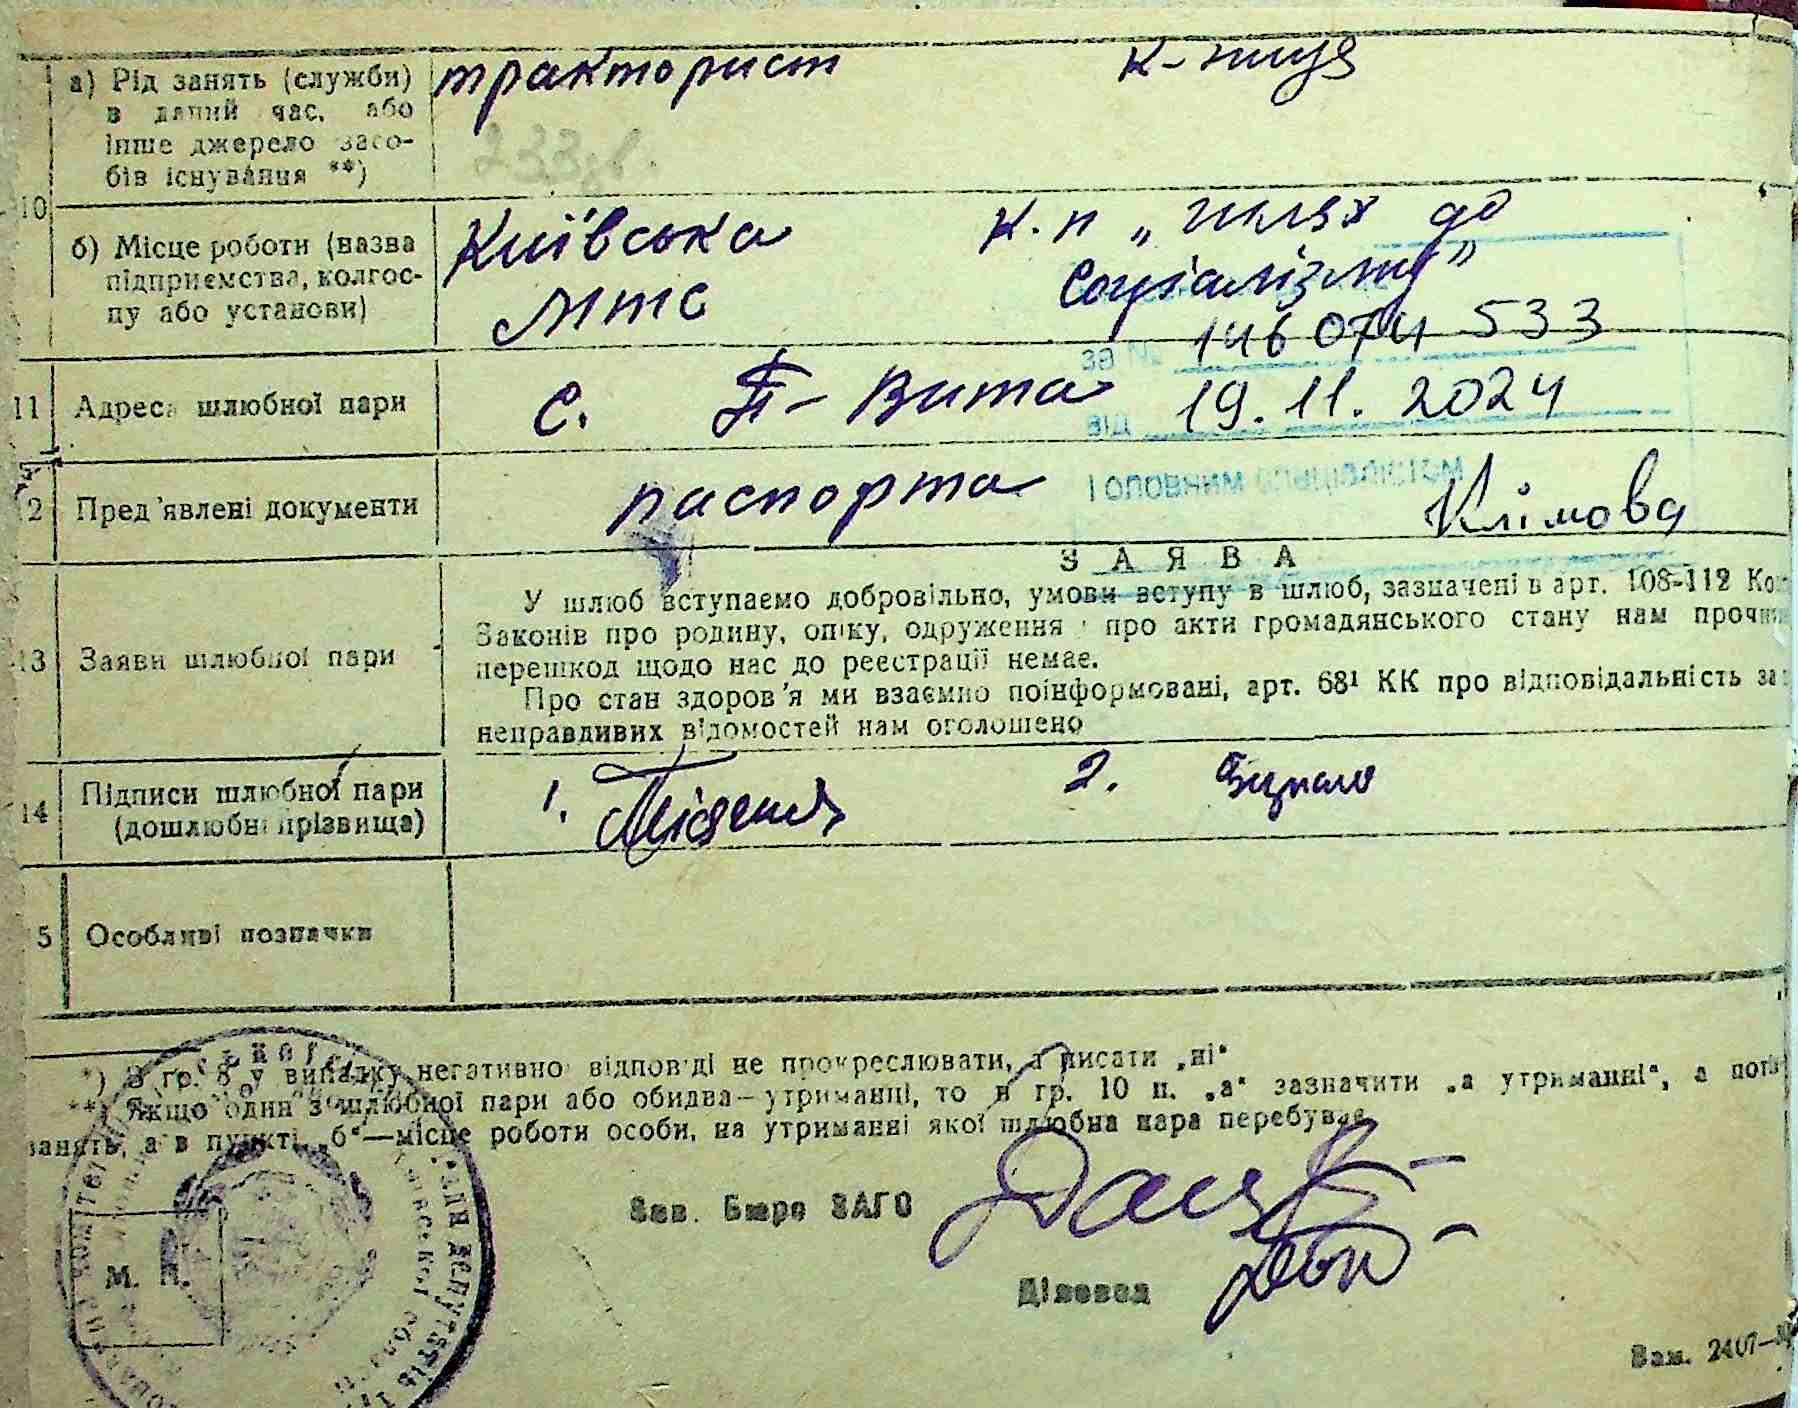 10
а) Рід занять (служби)
в даний час, або
інше джерело засо-
бів існування **)
тракторист
к-ниця
б) Місце роботи (назва
підприємства, колгос-
пу або установи)
Київська
МТС
к.п „Шлях до
Соціалізму"
за № 146 074 533
11 Адреса шлюбної пари
с. П-Вита
від 19.11.2024
12 Пред'явлені документи
паспорта
Головним спеціалістом
Клімова
13 Заяви шлюбної пари
ЗАЯВА
У шлюб вступаємо добровільно, умови вступу в шлюб, зазначені в арт. 108-112
Законів про родину, опіку, одруження про акти громадянського стану нам
перешкод щодо нас до реєстрації немає.
Про стан здоров'я ми взаємно поінформовані, арт. 68¹ КК про відповідальність за
неправдивих відомостей нам оголошено
14 Підписи шлюбної пари
(дошлюбні прізвища)
1.
2.
5 Особливі позначки
*) В гр. 8 у випадку негативної відповіді не прокреслювати, а писати „ні"
**) Якщо один з шлюбної пари або обидва—утриманці, то в гр. 10 п. „а" зазначити „а утриманні", а
занять, а в пункті „б"—місце роботи особи, на утриманні якої шлюбна пара перебуває
Зав. Бюро ЗАГС
Діловод
М. П.
Зам. 2407